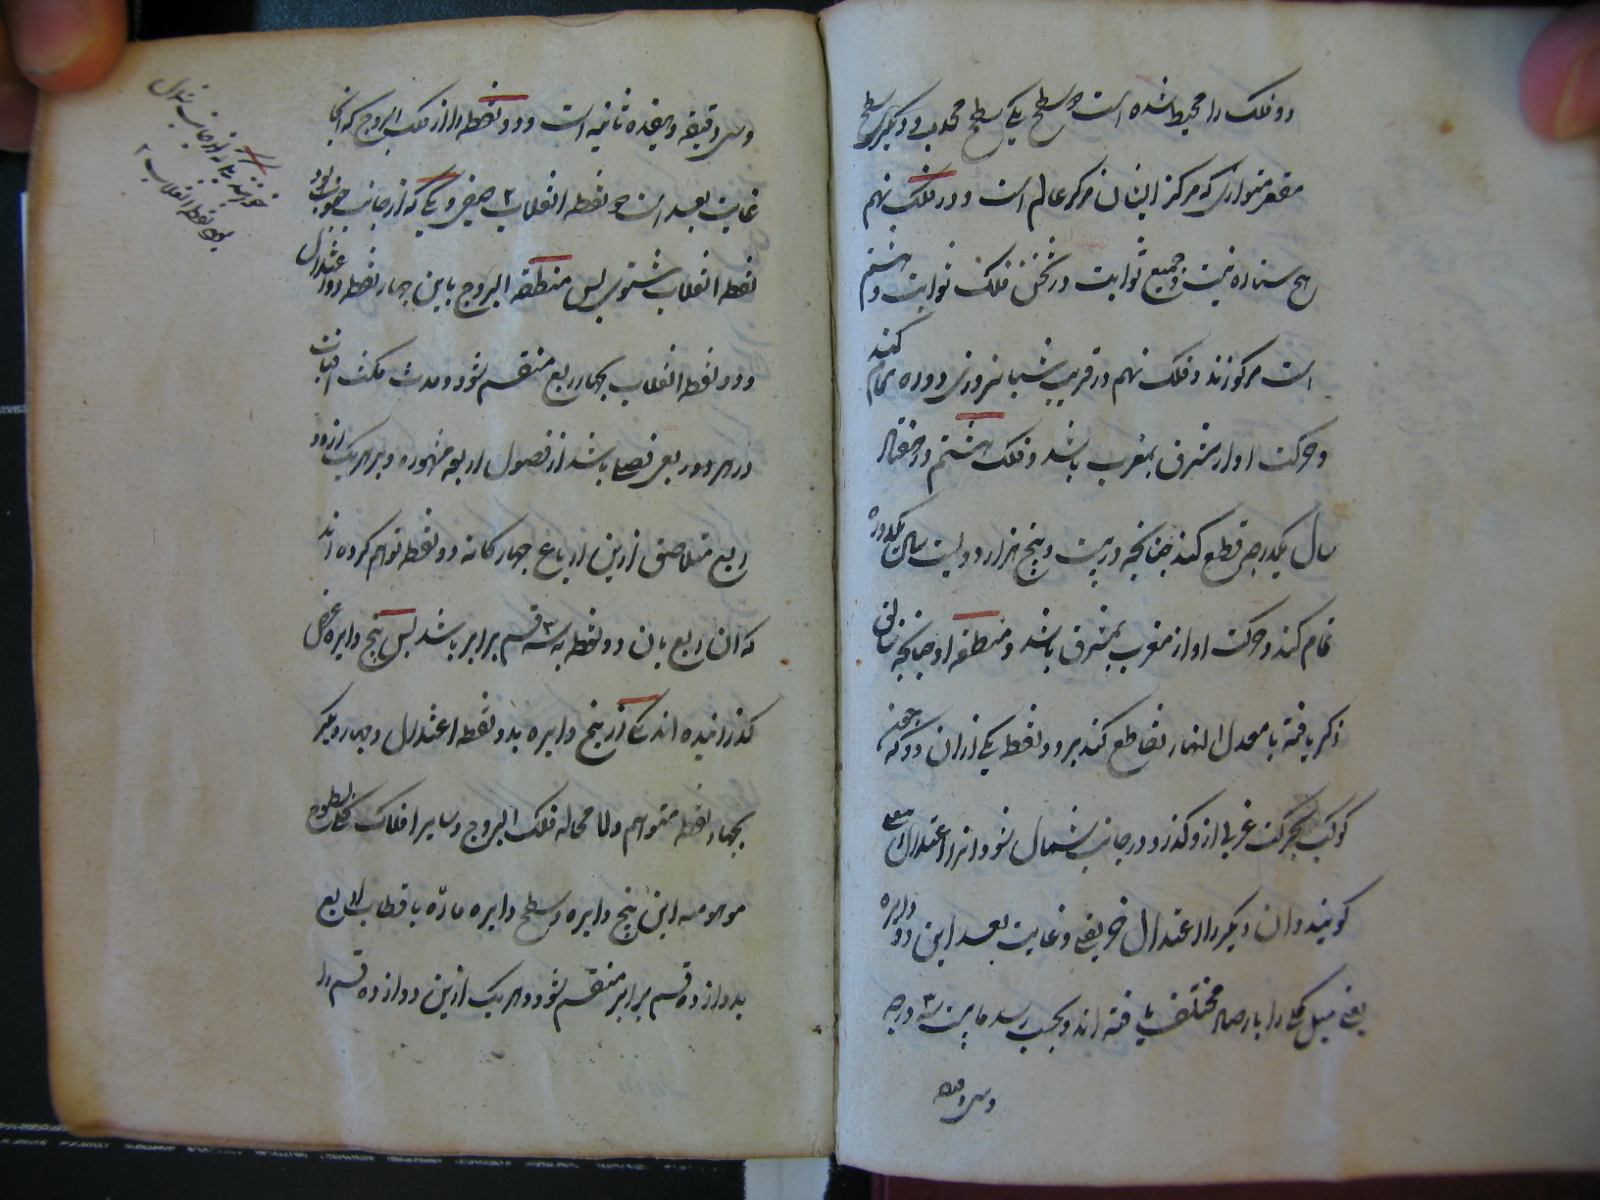 دو فلک را محیط شده است دو سطح یکی سطح محدب و دیگر سطح
مقعر متوازی که مرکز ایشان مرکز عالم است و در فلک نهم
هیچ ستاره نیست و جمیع ثوابت در ثخن فلک ثوابت و هشتم
است مرکوزند و فلک نهم در قریب شبانروزی دوره تمام کند
و حرکت او از مشرق بمغرب باشد و فلک هشتم در هفتاد
سال یکدرجه قطع کند چنانچه در بیست و پنج هزار و دویست سال یکدوره
تمام کند و حرکت او از مغرب بمشرق باشد و منطقه او چنانچه
ذکر یافته با معدل النهار تقاطع کند بر دو نقطه یکی از ان دو که چون
کوکب بحرکت غربی ازو گذرد در جانب شمال شود و انرا اعتدال ربیعی
گویند و ان دیگر را اعتدال خریفی و غایت بعد این دو دایره
یعنی میل کلی را بارصاد مختلف یافته اند و بحسب رصد ما بیست و سه درجه
وسی دقیقه
وسی دقیقه و هفده ثانیه است و دو نقطه را از فلک البروج که انجا
غایت بعد است دو نقطه انقلاب ۲ صیفی و یکی که از جانب جنوب بود
نقطه انقلاب شتوی پس منطقة البروج باین چهار نقطه دو اعتدال
و دو نقطه انقلاب بچهار ربع منقسم شود و مدت مکث افتاب
در هر دور بعی فصلی باشد از فصول اربعه مشهوره و بر هر یک از دو
ربع متلاصق ازین ارباع چهارکانه دو نقطه توهم کرده اند
که ان ربع بان دو نقطه به سه قسم برابر باشد پس پنج دایره عرض
گذرانیده اند یکی از پنج دایره بدو نقطه اعتدال و چهار دیگر
بچهار نقطه متوهم و لا محاله فلک البروج و سایر افلاک
موهومه این پنج دایره و سطح دایره ماره باقطاب اربعه
بدوازده قسم برابر منقسم شود و هر یک ازین دوازده قسم را
جانب شمال
بود نقطه انقلاب ۲